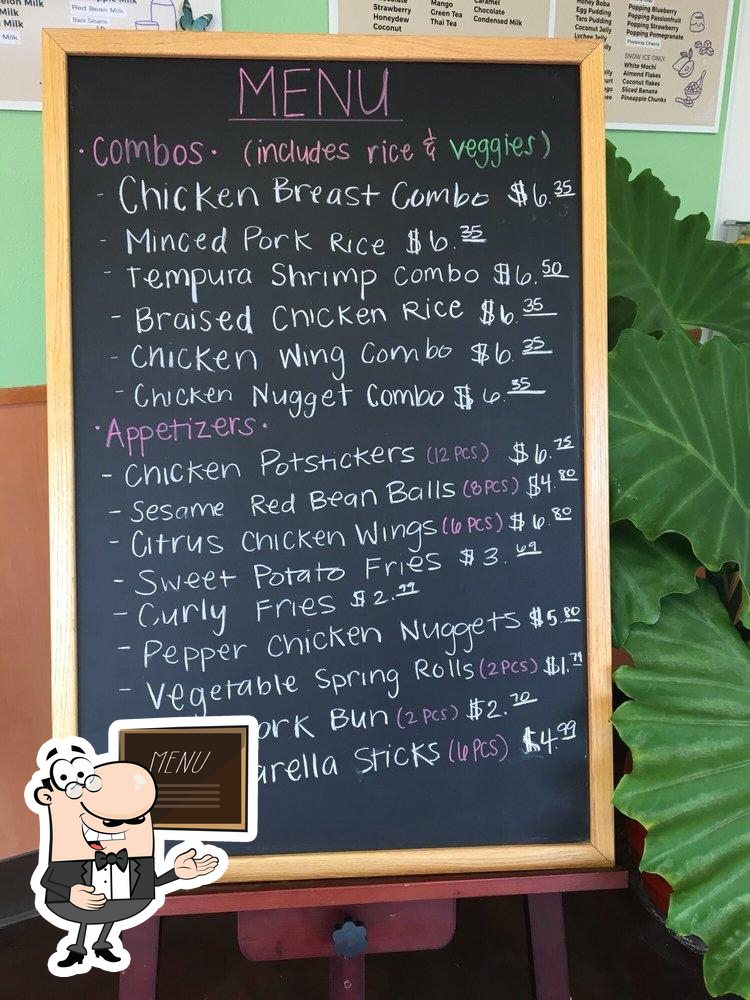 elon Milk
Red Bean Milk
Black Sesame
Milk
Strawberry
Honeydew
Coconut
Mango
Green Tea
Thai Tea
Caramel
Chocolate
Condensed Milk
Honey Boba
Egg Pudding
Taro Pudding
Coconut Jelly
Lychee Jelly
Popping Blueberry
Popping Passionfruit
Popping Strawberry
Popping Pomegranate
Popping Cherry
SNOW ICE ONLY:
White Mochi
Almond Flakes
Coconut flakes
Sliced Banana
Pineapple Chunks
MENU
· Combos · (includes rice & veggies)
- Chicken Breast Combo $6.35
- Minced Pork Rice $6.35
- Tempura Shrimp Combo $6.50
- Braised Chicken Rice $6.35
- Chicken Wing Combo $6.35
- Chicken Nugget Combo $6.35
· Appetizers ·
- Chicken Potstickers (12 PCS) $6.75
- Sesame Red Bean Balls (8 PCS) $4.80
- Citrus Chicken Wings (6 PCS) $6.80
- Sweet Potato Fries $3.69
- Curly Fries $2.99
- Pepper Chicken Nuggets $5.80
- Vegetable Spring Rolls (2 PCS) $1.79
ork Bun (2 PCS) $2.70
arella Sticks (6 PCS) $4.99
MENU